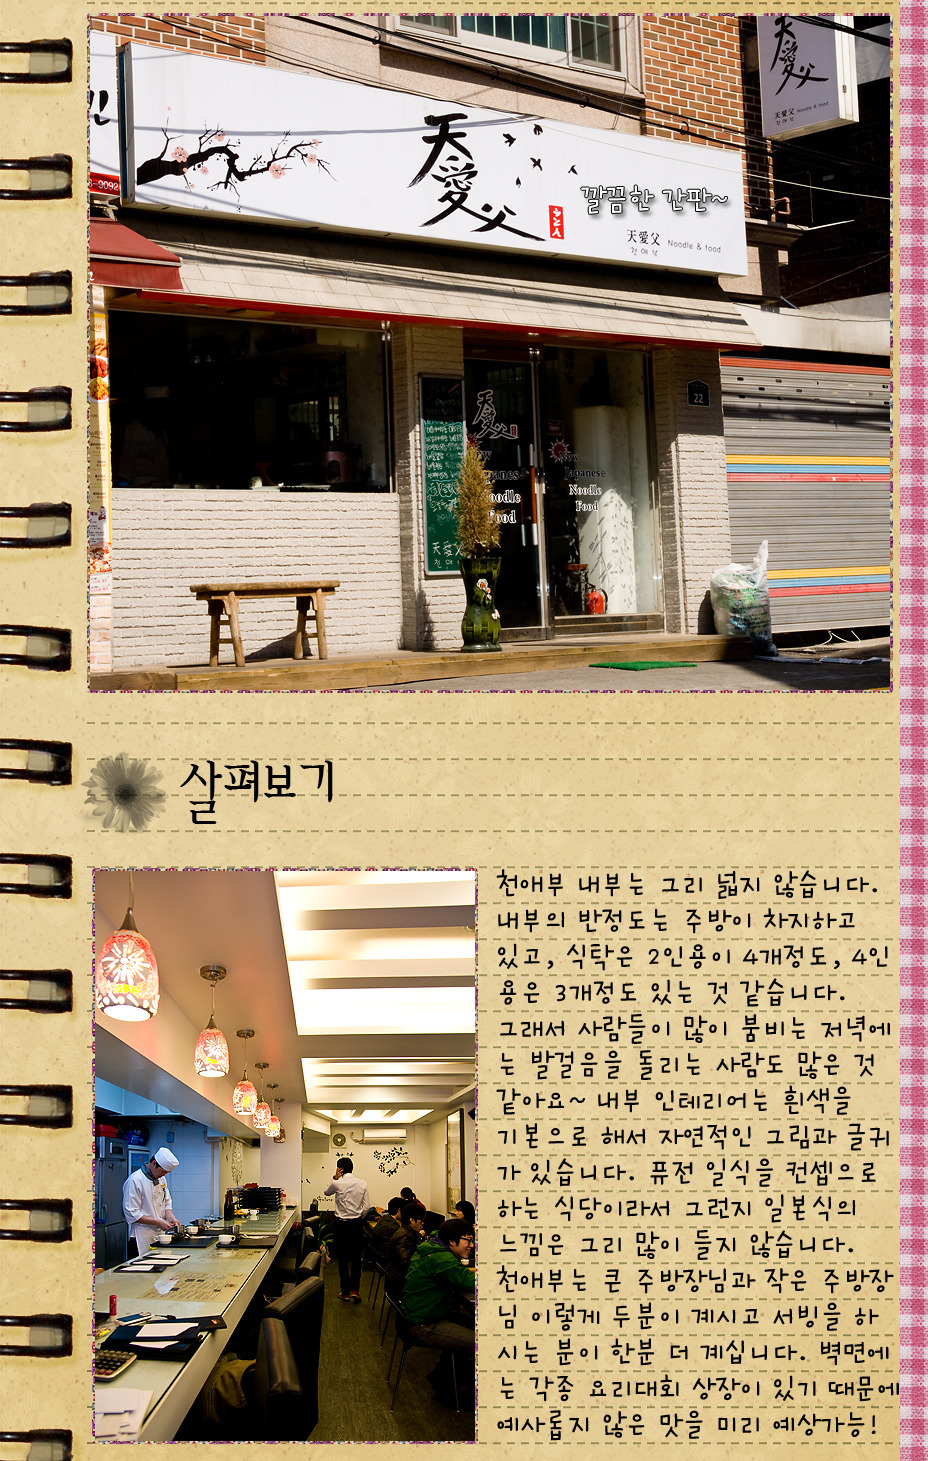 天愛父
天愛父
Noodle & food
천애부
9092
天愛父
うどん
깔끔한 간판~
天愛父 Noodle & food
천애부
22
天愛父
Noodle
Food
Japanese
Noodle
Food
天愛父
천애부
살펴보기
천애부 내부는 그리 넓지 않습니다.
내부의 반정도는 주방이 차지하고
있고, 식탁은 2인용이 4개정도, 4인
용은 3개정도 있는 것 같습니다.
그래서 사람들이 많이 붐비는 저녁에
는 발걸음을 돌리는 사람도 많은 것
같아요~ 내부 인테리어는 흰색을
기본으로 해서 자연적인 그림과 글귀
가 있습니다. 퓨전 일식을 컨셉으로
하는 식당이라서 그런지 일본식의
느낌은 그리 많이 들지 않습니다.
천애부는 큰 주방장님과 작은 주방장
님 이렇게 두분이 계시고 서빙을 하
시는 분이 한분 더 계십니다. 벽면에
는 각종 요리대회 상장이 있기 때문에
예사롭지 않은 맛을 미리 예상가능!